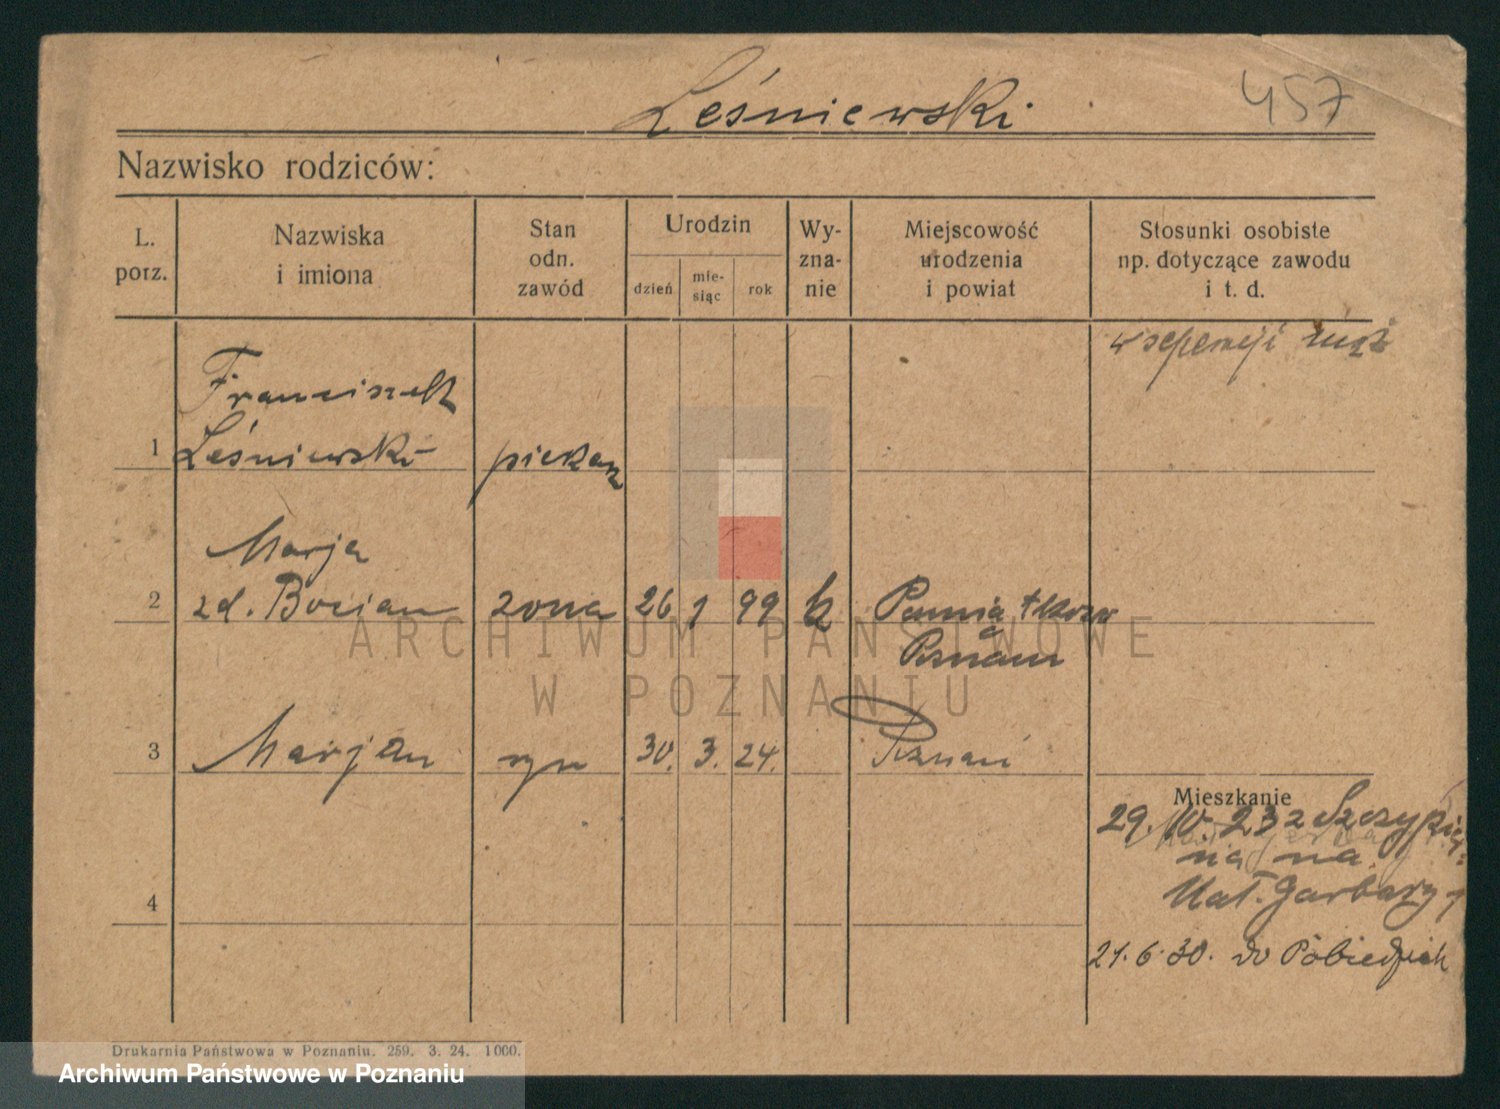 Leśniewski
457
Nazwisko rodziców:
L. porz.
Nazwiska i imiona
Stan odn. zawód
Urodzin
dzień
mie-siąc
rok
Wy-zna-nie
Miejscowość urodzenia i powiat
Stosunki osobiste np. dotyczące zawodu i t. d.
mąż
Franciszek
1 Leśniewski piekarz
Marja
2 zd. Bocian żona 26 1 99 k Pamiątkowo
Poznań
3 Marjan syn 30. 3. 24. Poznań
Mieszkanie
29. 10. 23 z Szczypior
na
4 Mał. Garbary 1
21. 6. 30. do Pobiedzisk
ARCHIWUM PAŃSTWOWE
W POZNANIU
Drukarnia Państwowa w Poznaniu. 259. 3. 24. 1000.
Archiwum Państwowe w Poznaniu